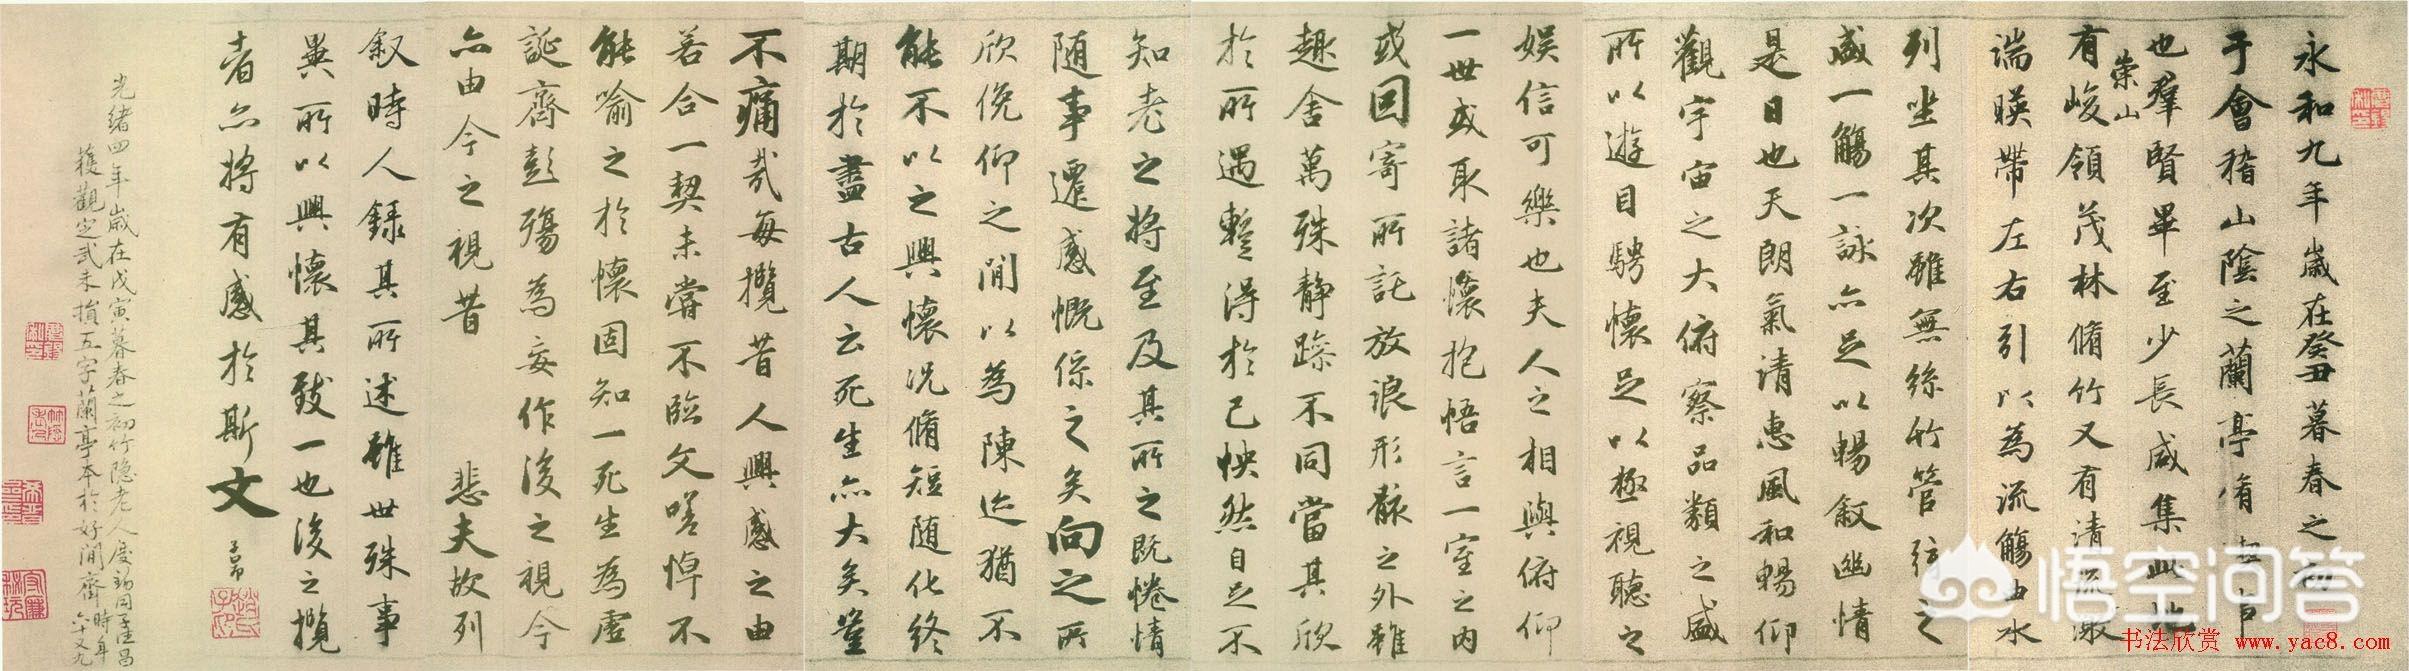 永和九年歲在癸丑暮春之初
于會稽山陰之蘭亭脩禊事
也羣賢畢至少長咸集此地
有崇山峻領茂林脩竹又有清流激
湍暎帶左右引以為流觴曲水
列坐其次雖無絲竹管弦之
盛一觴一詠亦足以暢敘幽情
是日也天朗氣清惠風和暢仰
觀宇宙之大俯察品類之盛
所以遊目騁懷足以極視聽之
娛信可樂也夫人之相與俯仰
一世或取諸懷抱悟言一室之內
或因寄所託放浪形骸之外雖
趣舍萬殊靜躁不同當其欣
於所遇暫得於己怏然自足不
知老之將至及其所之既惓情
隨事遷感慨係之矣向之所
欣俛仰之閒以為陳迹猶不
能不以之興懷況脩短隨化終
期於盡古人云死生亦大矣豈
不痛哉每攬昔人興感之由
若合一契未嘗不臨文嗟悼不
能喻之於懷固知一死生為虛
誕齊彭殤為妄作後之視今
亦由今之視昔 悲夫故列
敘時人錄其所述雖世殊事
異所以興懷其致一也後之攬
者亦將有感於斯文 子昂
光緒四年歲在戊寅暮春之初竹隱老人
獲觀定武未損五字蘭亭本於好閒齋 時年六十又九
悟空问答
书法欣赏 www.yac8.com